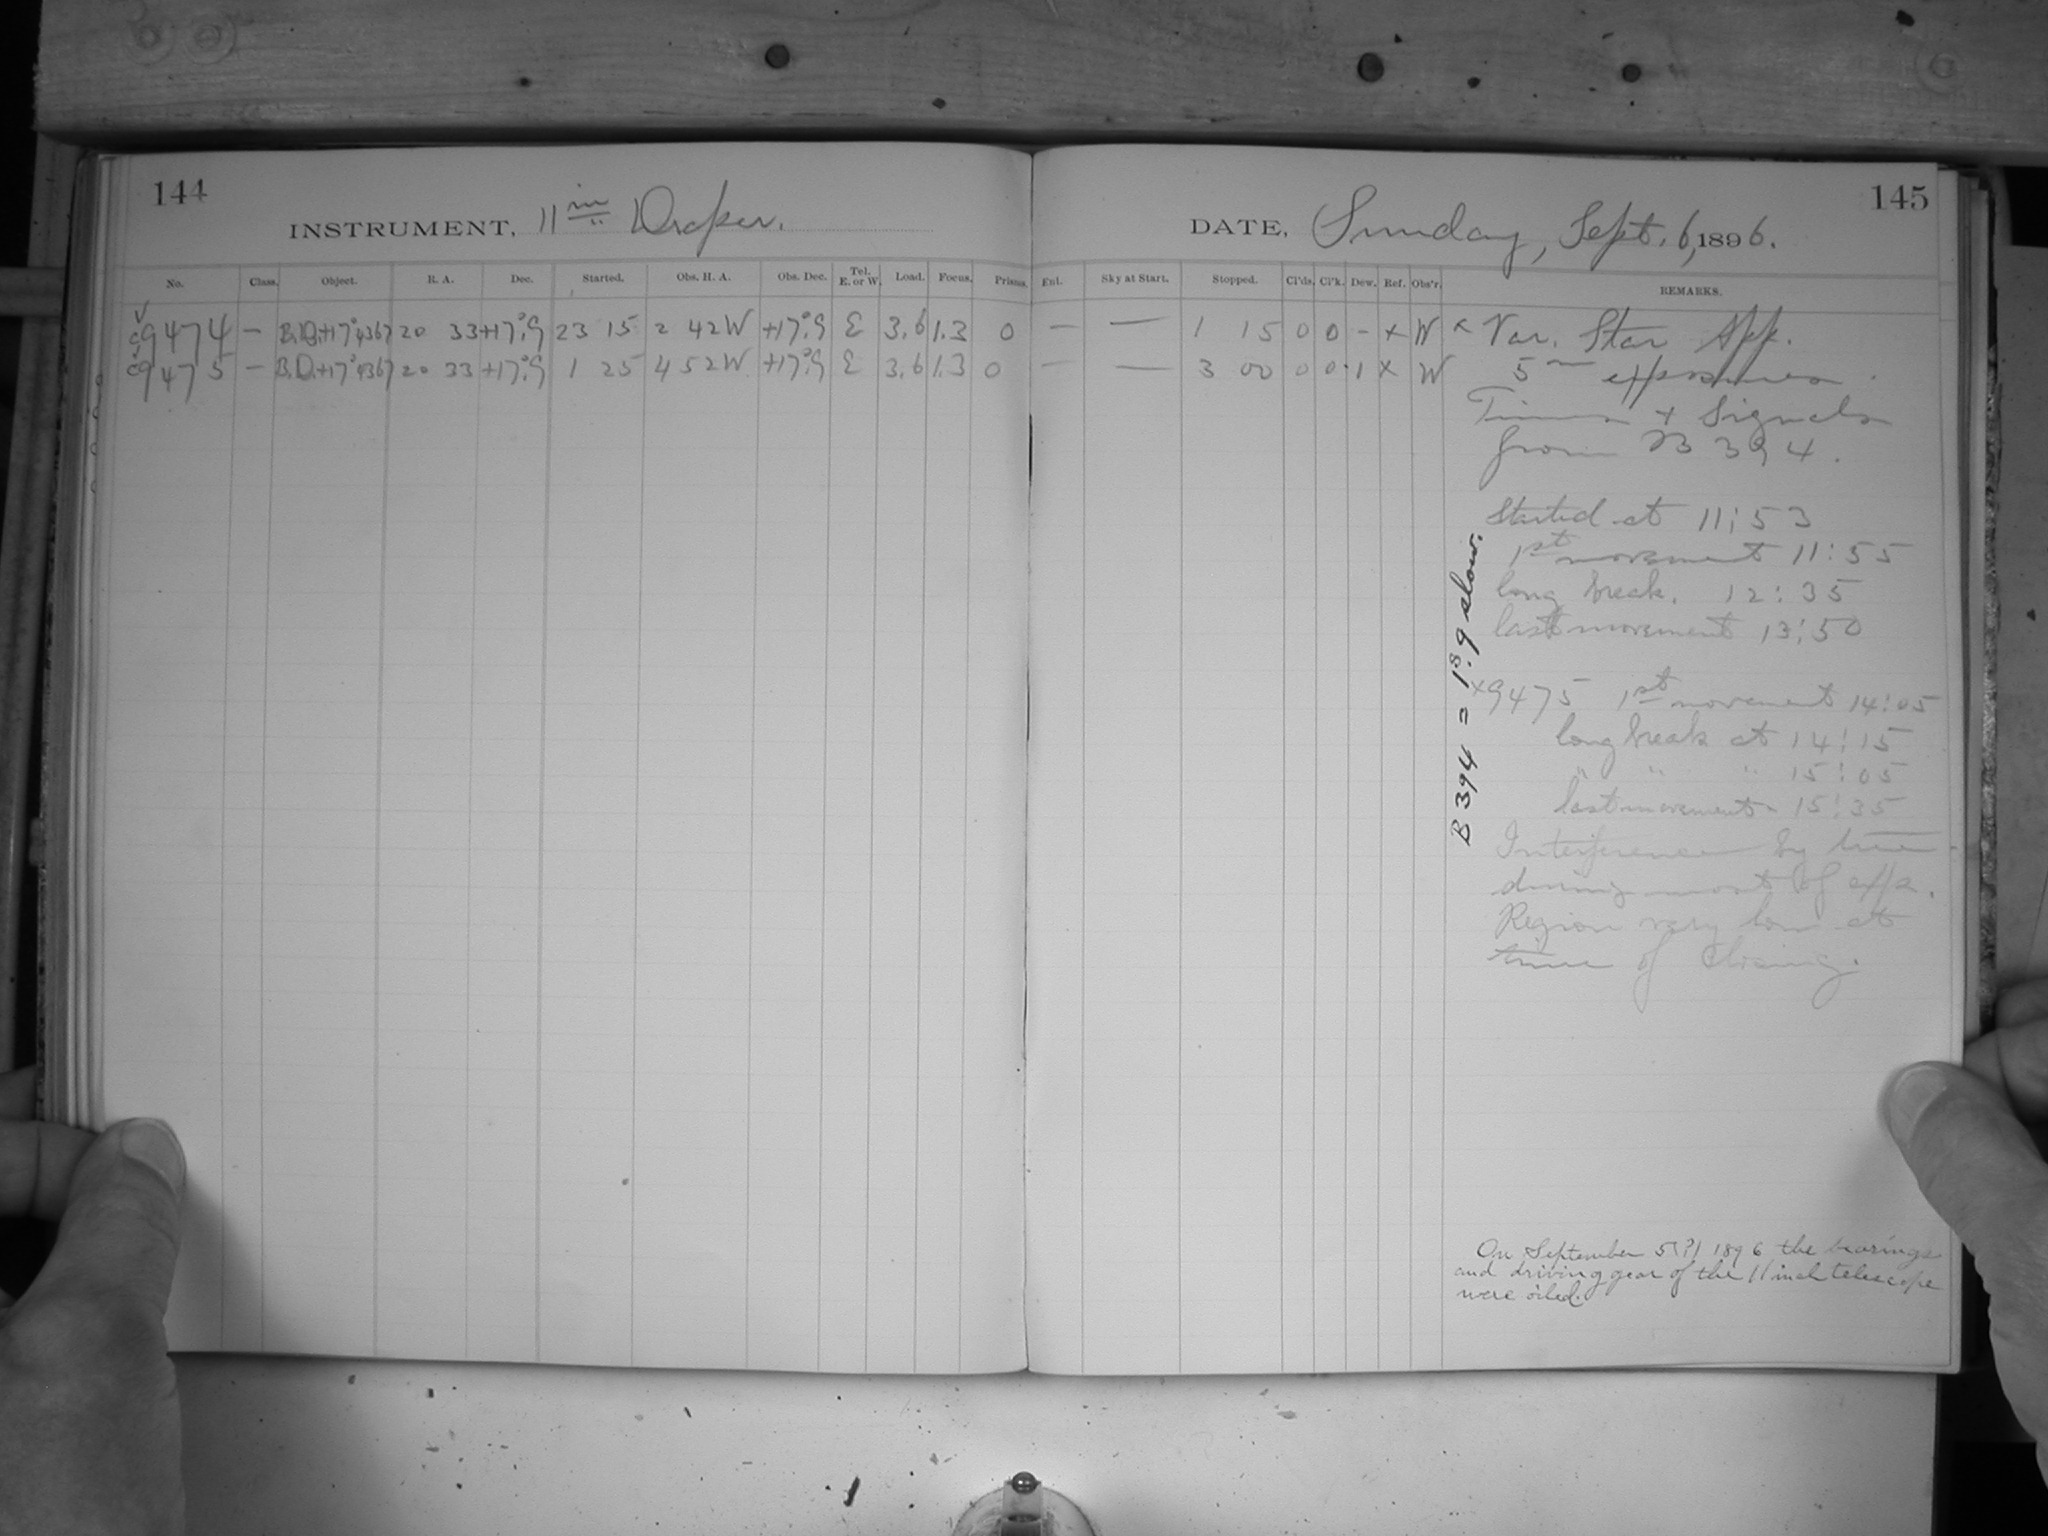 144
INSTRUMENT, 11 in Draper.
No. Class. Object. R. A. Dec. Started. Obs. H. A. Obs. Dec. Tel. E. or W. Load. Focus. Prisms.
c9474 — B.D.+17°4367 20 33 +17°.9 23 15 2 42W +17°.9 E 3.6 1.3 0
c9475 — B.D.+17°4367 20 33 +17°.9 1 25 4 52W +17°.9 E 3.6 1.3 0
145
DATE, Sunday, Sept. 6, 1896.
Ent. Sky at Start. Stopped. Cl'ds. Cl'k. Dew. Ref. Obs'r. REMARKS.
— — 1 15 0 0 - x W x Var. Star App.
— — 3 00 0 0 .1 x W 5m exposures
Times + Signals
from B 394.
Started at 11:53
1st movement 11:55
long break. 12:35
last movement 13:50
x9475 1st movement 14:05
long break at 14:15
" " " 15:05
last movement 15:35
Interference by tree
during most of exp.
Region very low at
time of closing.
B 394 = 1s.9 slow.
On September 5(?) 1896 the bearings
and driving gear of the 11 inch telescope
were oiled.